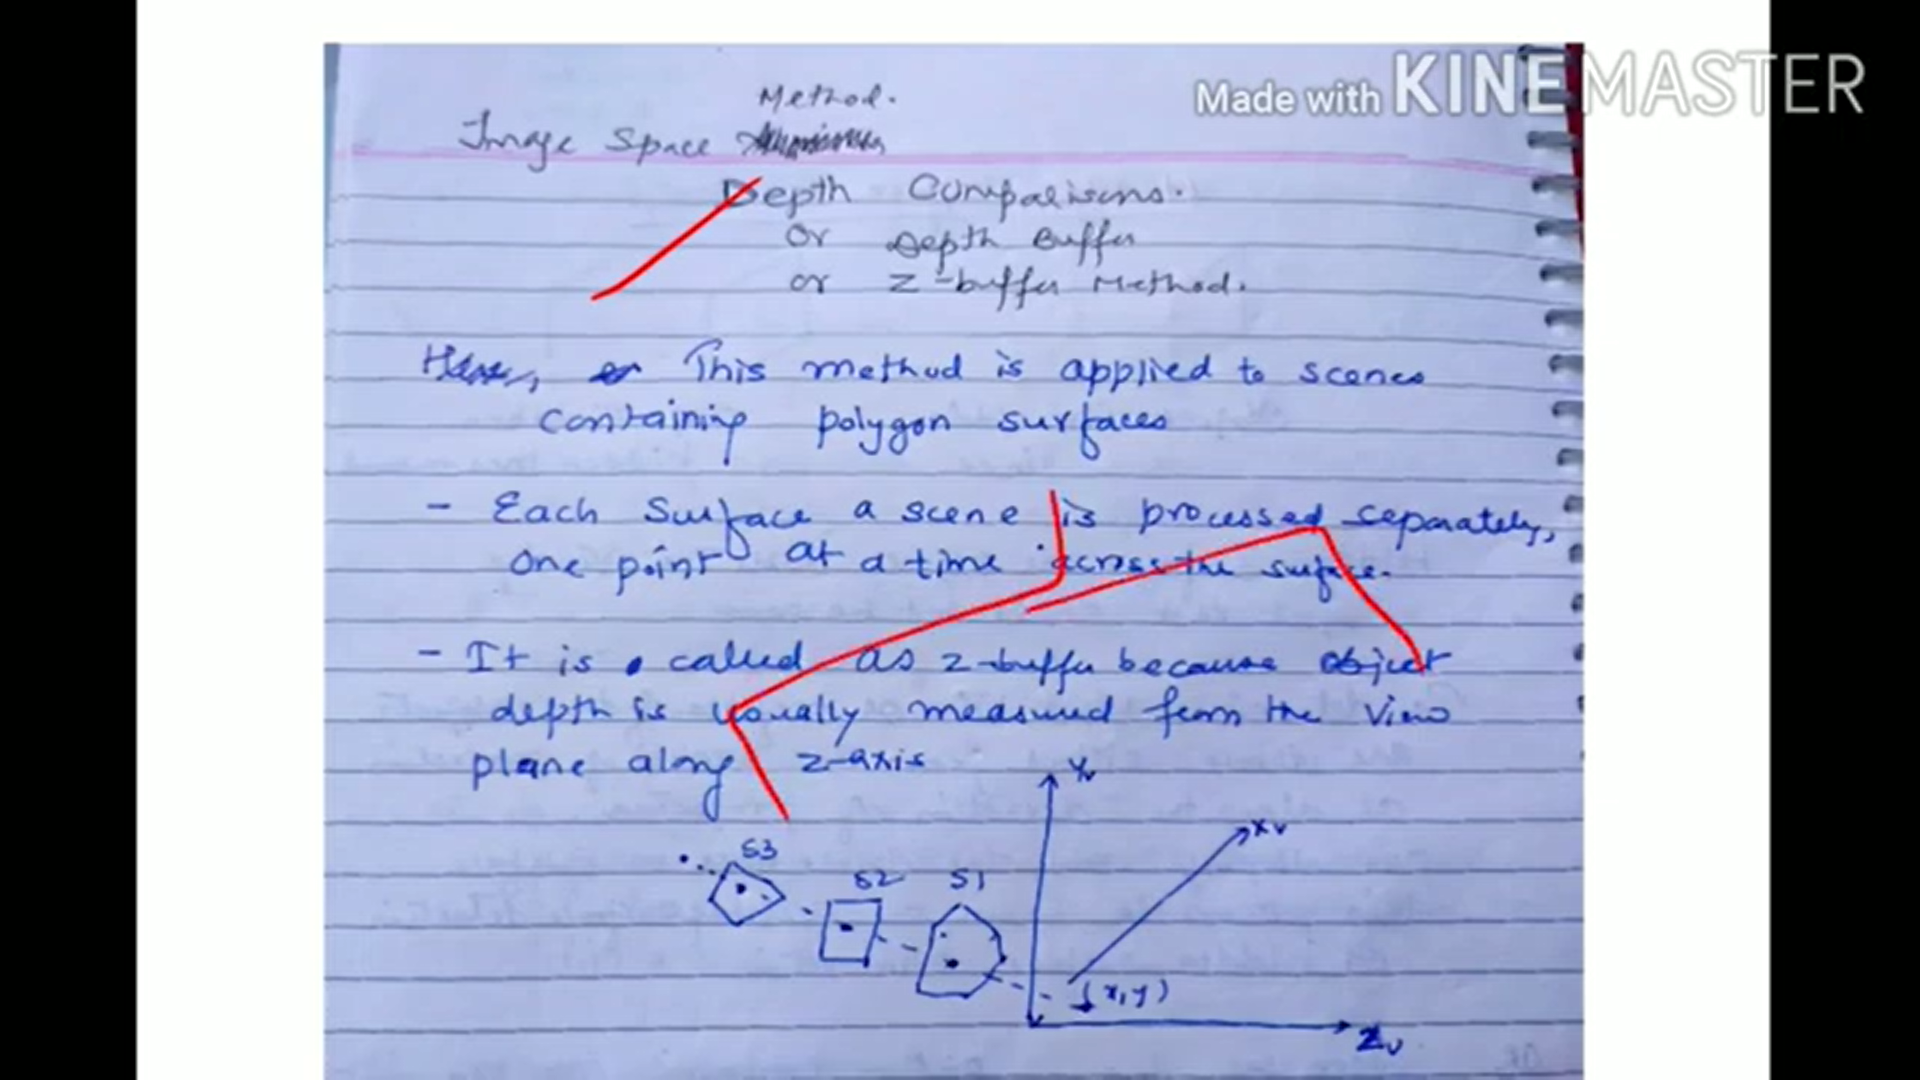 Made with KINEMASTER
Method.
Image Space
Depth Comparisons.
or Depth Buffer
or Z-buffer Method.
This method is applied to scenes
containing polygon surfaces
- Each Surface a scene is processed separately,
one point at a time across the surface.
- It is called as z-buffer because object
depth is usually measured from the view
plane along z-axis
Yv
Xv
S3
S2
S1
(x,y)
Zv